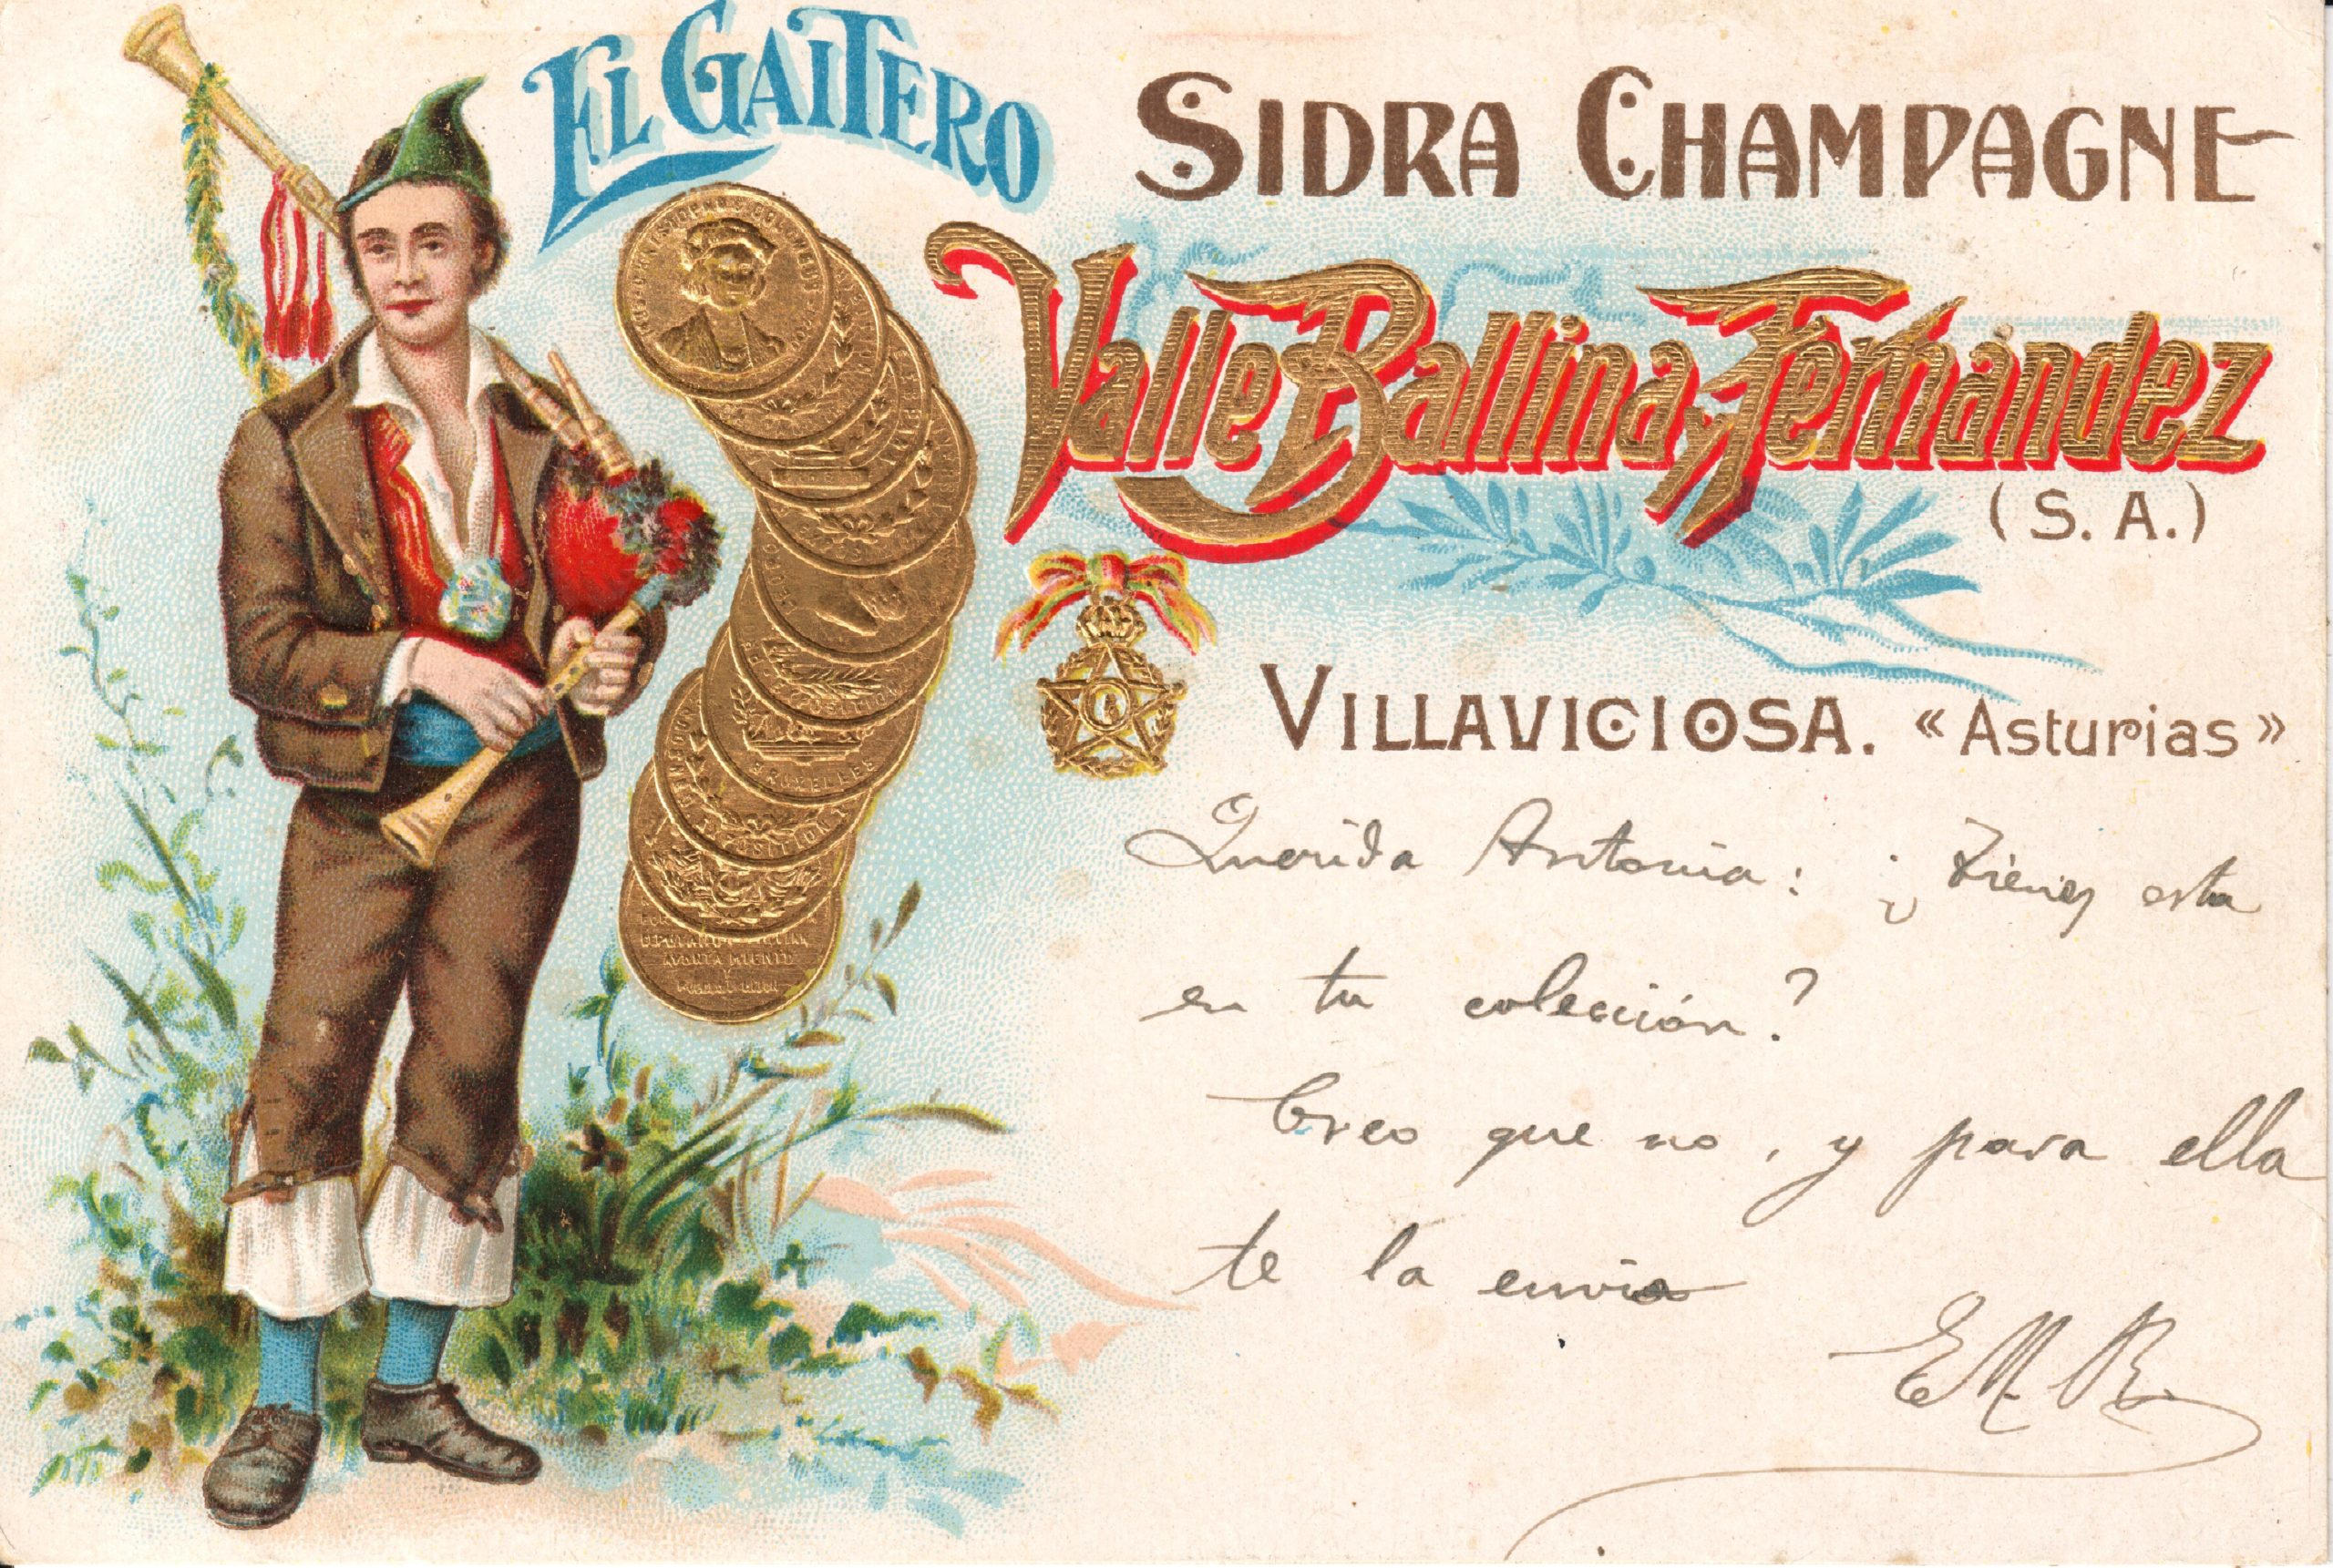 EL GAITERO
SIDRA CHAMPAGNE
Valle Ballina y Fernández
(S. A.)
VILLAVICIOSA. «Asturias»
Querida Antonia: ¿Tienes esta
en tu colección?
Creo que no, y para ella
te la envio
EMR
BRUXELLES
AYUNTAMIENTO
Y